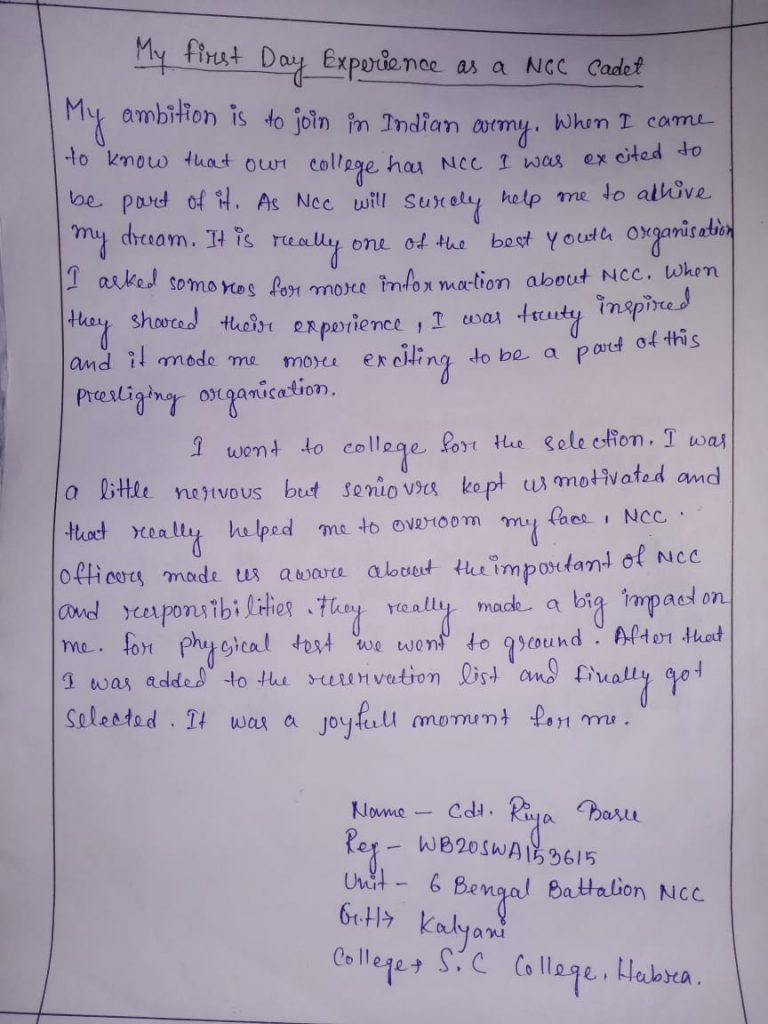 My first Day Experience as a NCC Cadet
My ambition is to join in Indian army. When I came
to know that our college has NCC I was excited to
be part of it. As Ncc will surely help me to alhive
my dream. It is really one of the best youth organisation
I asked for more information about NCC. When
they shared their experience, I was truly inspired
and it made me more exciting to be a part of this
organisation.
I went to college for the selection. I was
a little nervous but seniours kept us motivated and
that really helped me to overoom my face, NCC.
officers made us aware about the important of NCC
and responsibilities. They really made a big impact on
me. for physical test we went to ground. After that
I was added to the reservation list and finally got
Selected. It was a joyfull moment for me.
Name - Cdt. Riya Basu
Reg - WB20SWA153615
Unit - 6 Bengal Battalion NCC
Kalyani
College → S.C College, Habra.